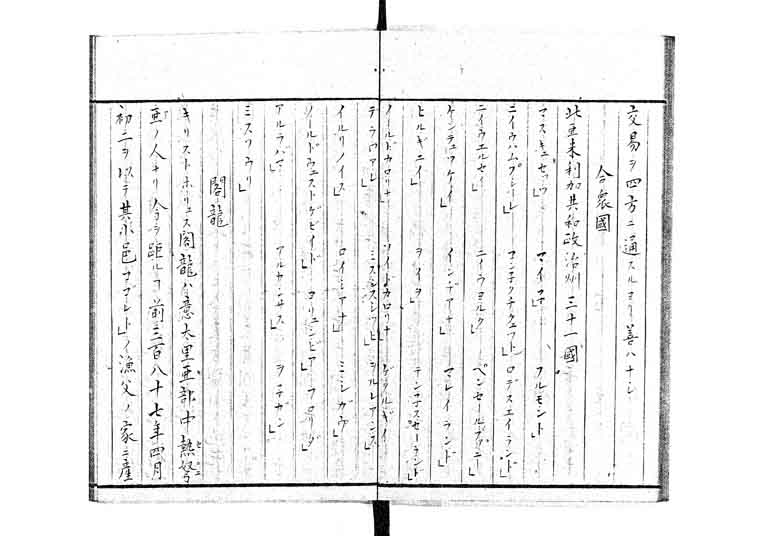 交易ヲ四方ニ通スルヨリ善ハナシ
合衆國
北亜米利加共和政治州三十一國
マスキュセッツ」 マイネ」 フルモント」
ニイウハムプシーレ」 コンネクチクェット」 ロデスエイランド」
ニイウエルセイ」 ニイウヨルク」 ペンセールファニー」
ケンテュッケイ」 インデアナ」 マレイランド」
ヒルギニイ」 ヲイヲ」 テンネスセーランド」
ノールドカロリナ」 ソイドカロリナ」 ゲヲルギイ」
テラワアレ」 ミスシスシッピ」 ヲルレアンス」
イルリノイス」 ロイシアナ」 ミシガウ」
ノールドウェストゲビイド」 コリュンビア」 フロリダ」
アルラバマ」 アルカンサス」 ヲレガン」
ミスリウリ」
閣龍
キリストホリュス閣龍ハ意太里亜部中熱努
亜ノ人ナリ今ヲ距ルヿ前三百八十七年四月
初二ヲ以テ其小邑ノ漁父ノ家ニ産